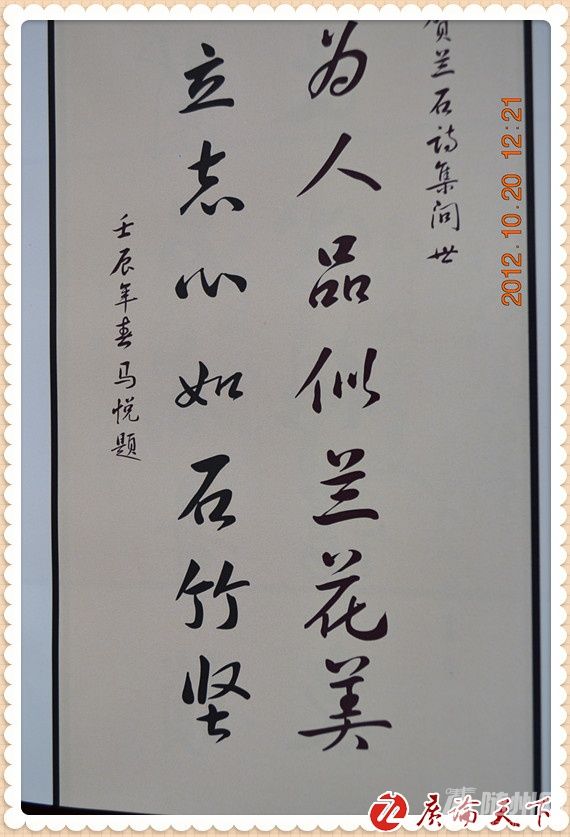 贺兰石诗集问世
为人品似兰花美
立志心如石竹坚
壬辰年春马悦题
2012.10.20 12:21
广论天下